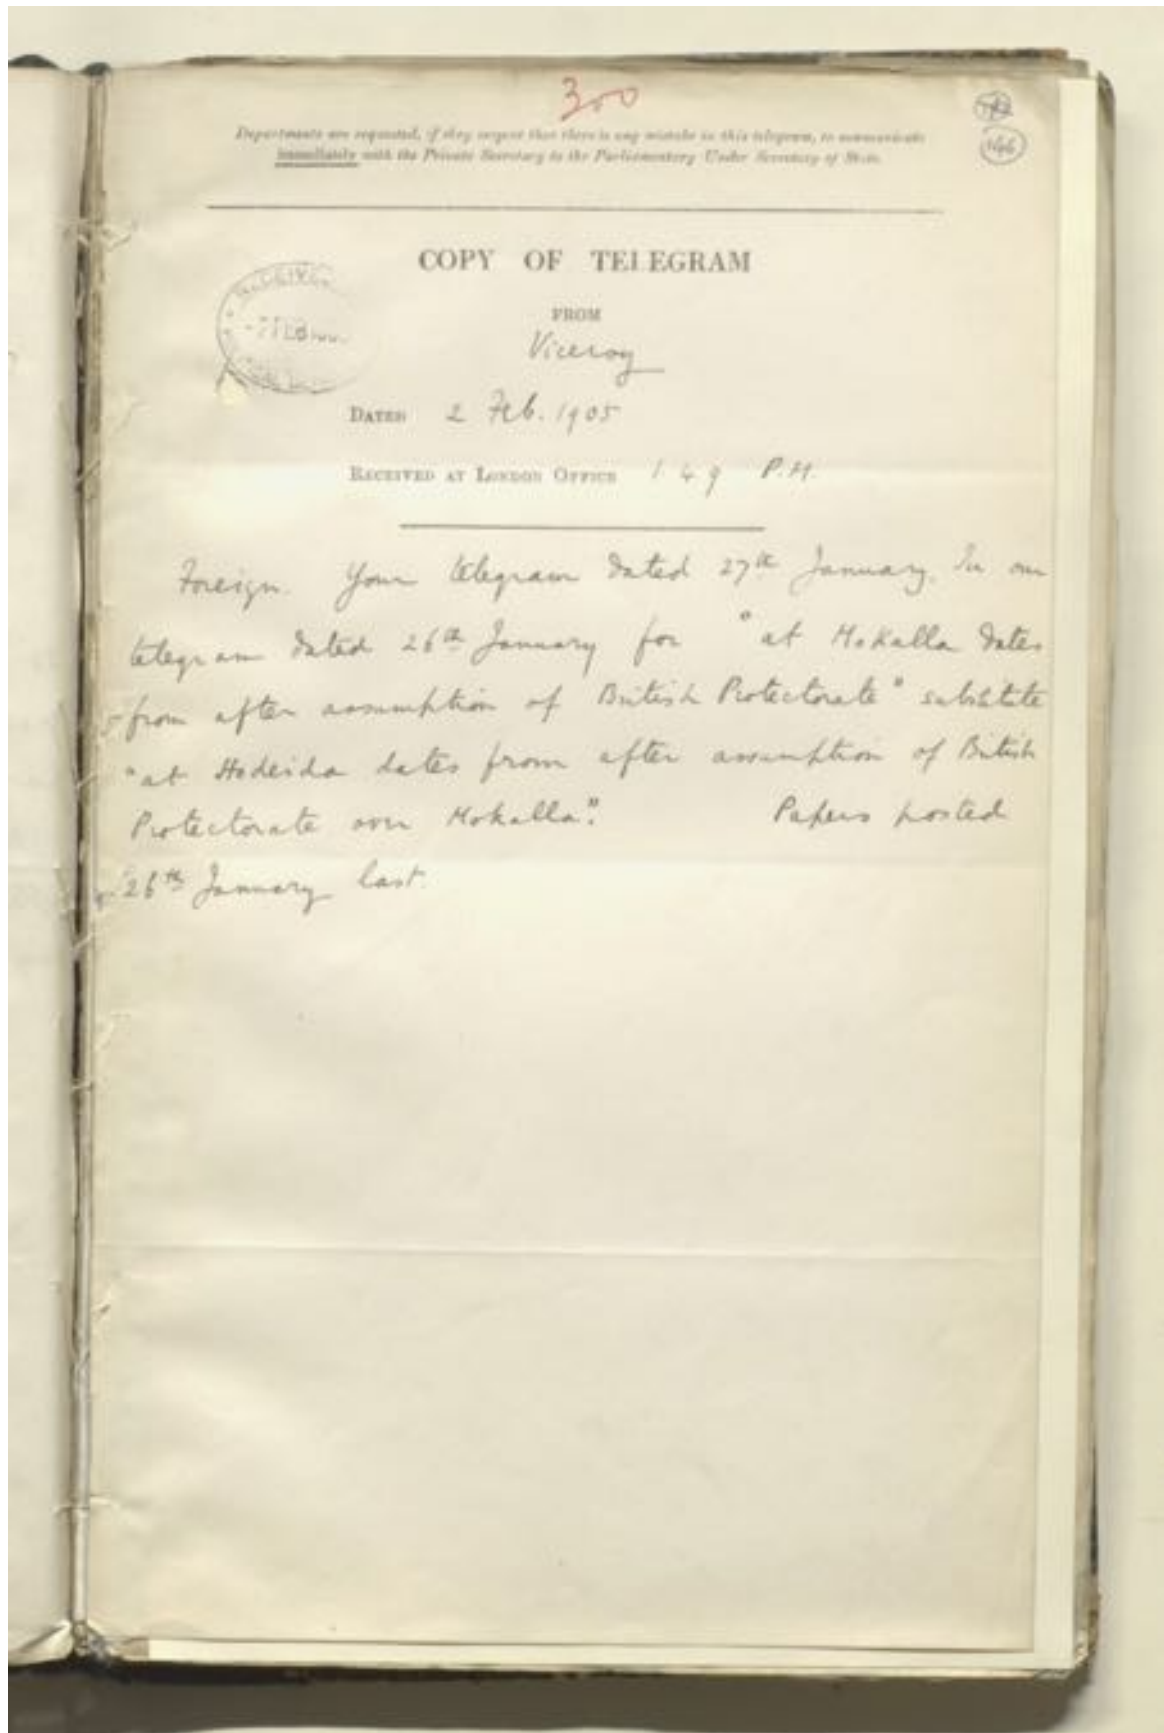 300
Departments are requested, if they suspect that there is any mistake in this telegram, to communicate
immediately with the Private Secretary to the Parliamentary Under Secretary of State.
146
COPY OF TELEGRAM
FROM
Viceroy
DATED 2 Feb. 1905
RECEIVED AT LONDON OFFICE 1 49 P.M.
Foreign. Your telegram dated 27th January. In our
telegram dated 26th January for "at Mokalla dates
from after assumption of British Protectorate" substitute
"at Hodeida dates from after assumption of British
Protectorate over Mokalla". Papers posted
26th January last.